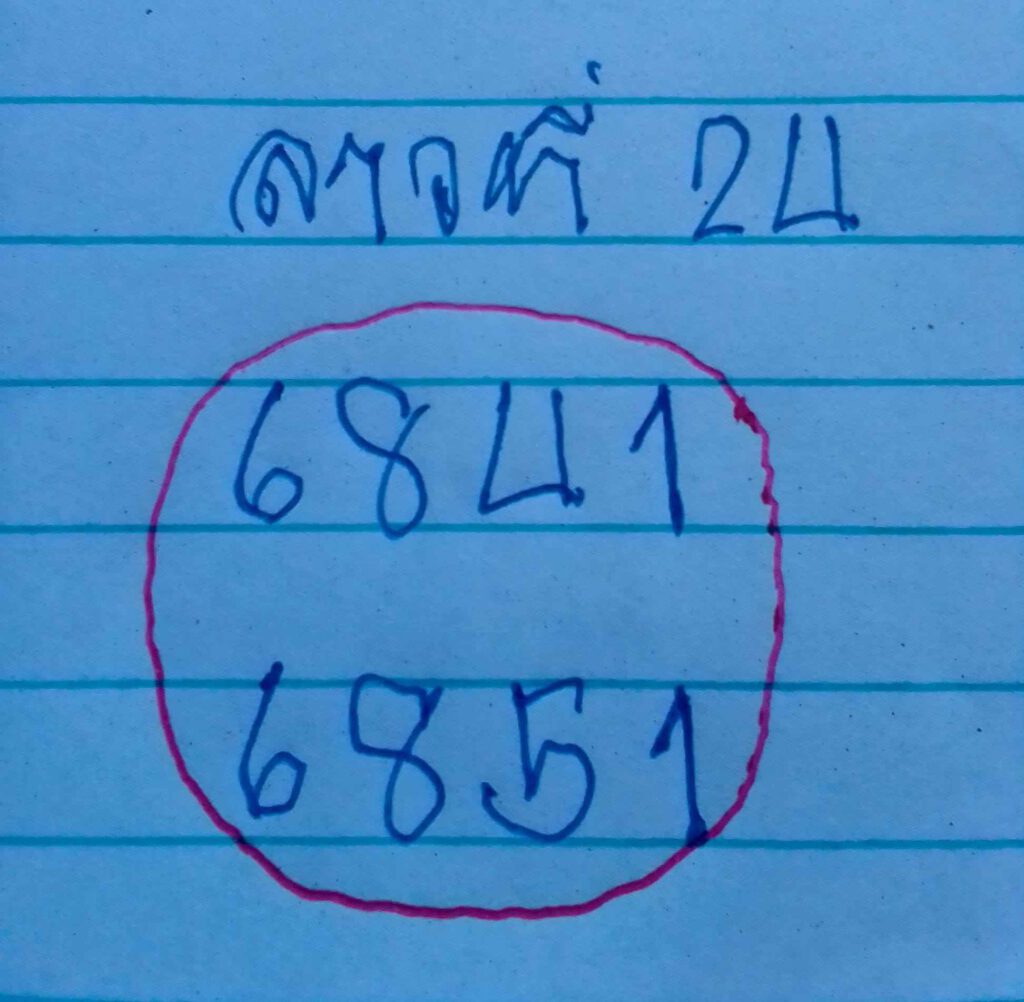 ลาวที่ 24
6841
6851